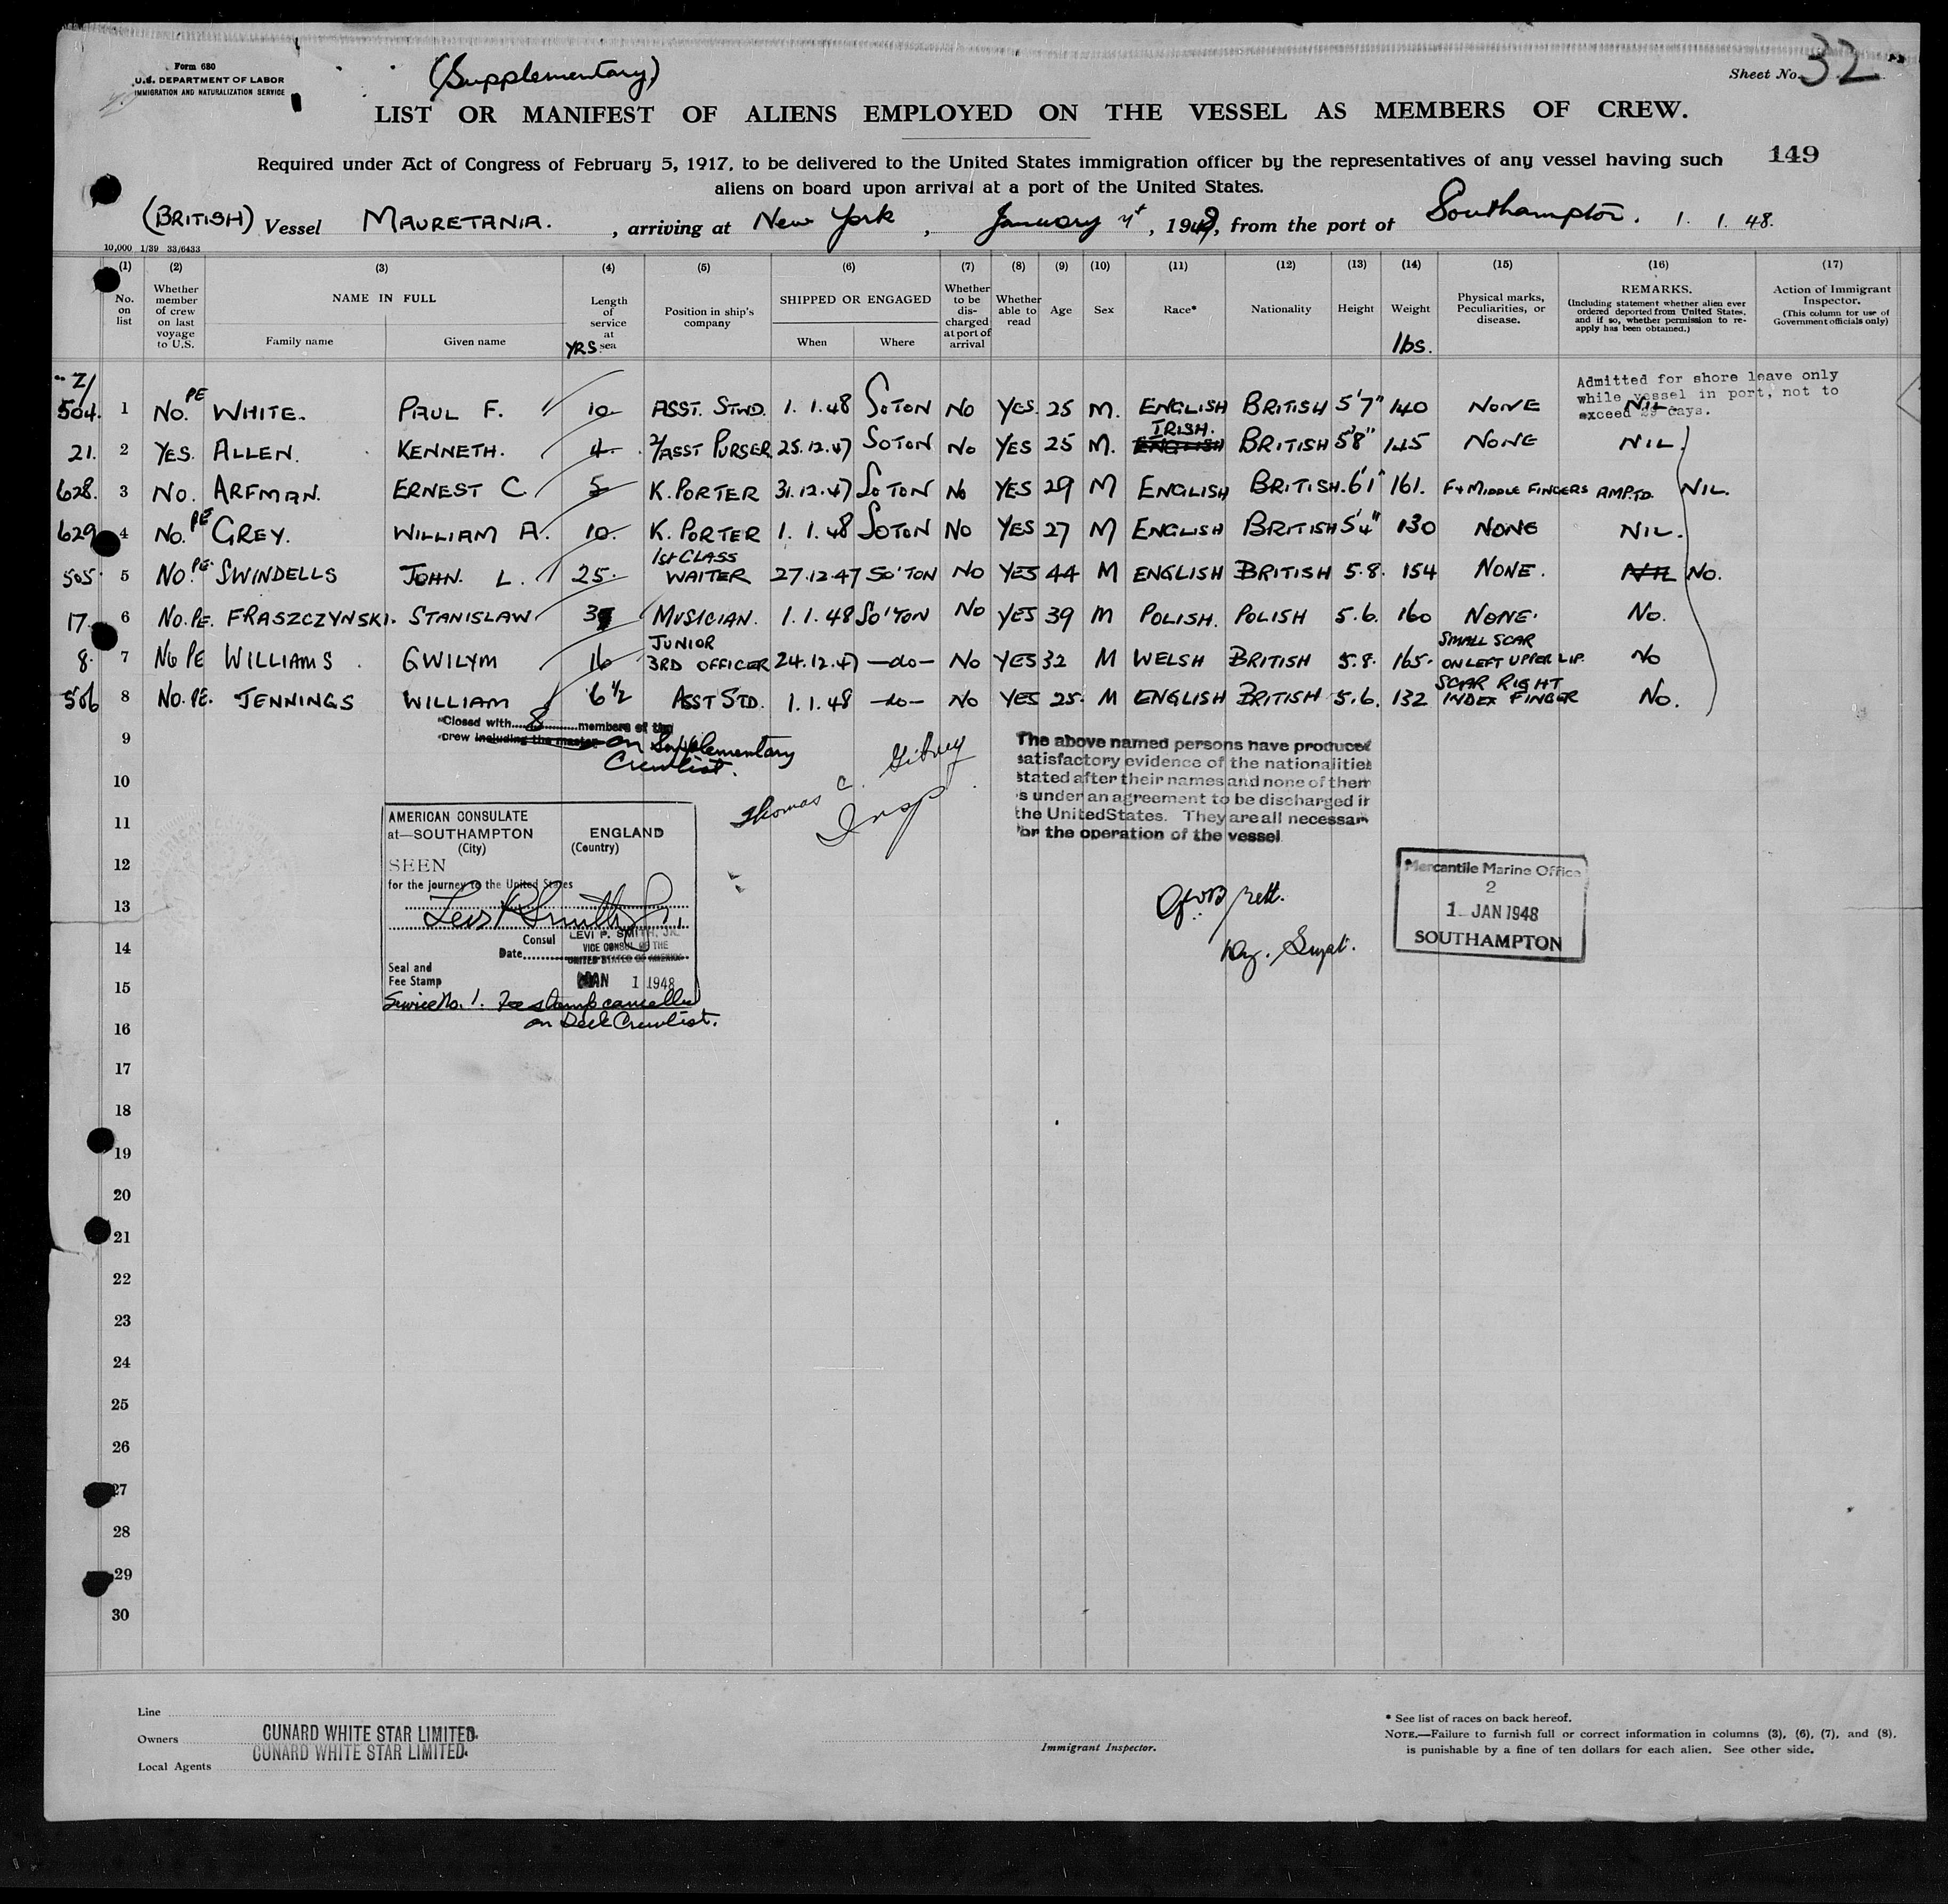 Form 680
U.S. DEPARTMENT OF LABOR
IMMIGRATION AND NATURALIZATION SERVICE
(Supplementary)
Sheet No. 32
LIST OR MANIFEST OF ALIENS EMPLOYED ON THE VESSEL AS MEMBERS OF CREW.
149
Required under Act of Congress of February 5, 1917, to be delivered to the United States immigration officer by the representatives of any vessel having such
aliens on board upon arrival at a port of the United States.
(BRITISH) Vessel MAURETANIA. , arriving at New York , January 7th , 1948, from the port of Southampton. 1. 1. 48.
10,000 1/39 33/6433
(1) (2) (3) (4) (5) (6) (7) (8) (9) (10) (11) (12) (13) (14) (15) (16) (17)
No. on list
Whether member of crew on last voyage to U.S.
NAME IN FULL
Family name
Given name
Length of service at sea YRS.
Position in ship's company
SHIPPED OR ENGAGED
When
Where
Whether to be discharged at port of arrival
Whether able to read
Age
Sex
Race*
Nationality
Height
Weight
lbs.
Physical marks, Peculiarities, or disease.
REMARKS.
(Including statement whether alien ever ordered deported from United States, and if so, whether permission to re-apply has been obtained.)
Action of Immigrant Inspector.
(This column for use of Government officials only)
Z/
Admitted for shore leave only
while vessel in port, not to
exceed 29 days.
504. 1 No. PE WHITE. PAUL F. 10 ASST. STWD. 1. 1.48 SOTON No YES. 25 M. ENGLISH BRITISH 5'7" 140 NONE NIL.
21. 2 YES. ALLEN. KENNETH. 4 2/ASST PURSER 25.12.47 SOTON No YES 25 M. ENGLISH IRISH. BRITISH 5'8" 145 NONE NIL.
628. 3 NO. ARFMAN. ERNEST C. 5 K. PORTER 31.12.47 SOTON No YES 29 M ENGLISH BRITISH. 6'1" 161. F+MIDDLE FINGERS AMPTD. NIL.
629 4 NO. PE GREY. WILLIAM A. 10 K. PORTER 1. 1.48 SOTON NO YES 27 M ENGLISH BRITISH 5'4" 130 NONE NIL.
505 5 NO. PE SWINDELLS JOHN. L. 25. 1st CLASS WAITER 27.12.47 SO'TON NO YES 44 M ENGLISH BRITISH 5.8. 154 NONE. NIL No.
17. 6 NO. PE. FRASZCZYNSKI. STANISLAW MUSICIAN. 1.1.48 SO'TON No YES 39 M POLISH. POLISH 5.6. 160 NONE. No.
8. 7 NO PE WILLIAMS. GWILYM 16 JUNIOR 3RD OFFICER 24.12.47 —do— No YES 32 M WELSH BRITISH 5.8. 165. SMALL SCAR ON LEFT UPPER LIP. No
506 8 NO. PE. JENNINGS WILLIAM 6½ ASST STD. 1.1.48 —do— NO YES 25. M ENGLISH BRITISH 5.6. 132 SCAR RIGHT INDEX FINGER No.
Closed with 8 members of the
crew including the master on Supplementary
Crewlist.
Thomas C. Gibney
Insp
The above named persons have produced
satisfactory evidence of the nationalities
stated after their names and none of them
is under an agreement to be discharged in
the United States. They are all necessary
for the operation of the vessel
9
10
11
12
13
14
15
16
17
18
19
20
21
22
23
24
25
26
27
28
29
30
AMERICAN CONSULATE
at—SOUTHAMPTON ENGLAND
(City) (Country)
SEEN
for the journey to the United States
Consul LEVI P. SMITH, JR.
VICE CONSUL OF THE
Date UNITED STATES OF AMERICA
Seal and
Fee Stamp JAN 1 1948
Service No. 1. Fee stamp cancelled
on Deck Crewlist.
Dy. Supt.
Mercantile Marine Office
2
1 JAN 1948
SOUTHAMPTON
Line
Owners CUNARD WHITE STAR LIMITED.
CUNARD WHITE STAR LIMITED.
Local Agents
Immigrant Inspector.
* See list of races on back hereof.
NOTE.—Failure to furnish full or correct information in columns (3), (6), (7), and (8),
is punishable by a fine of ten dollars for each alien. See other side.